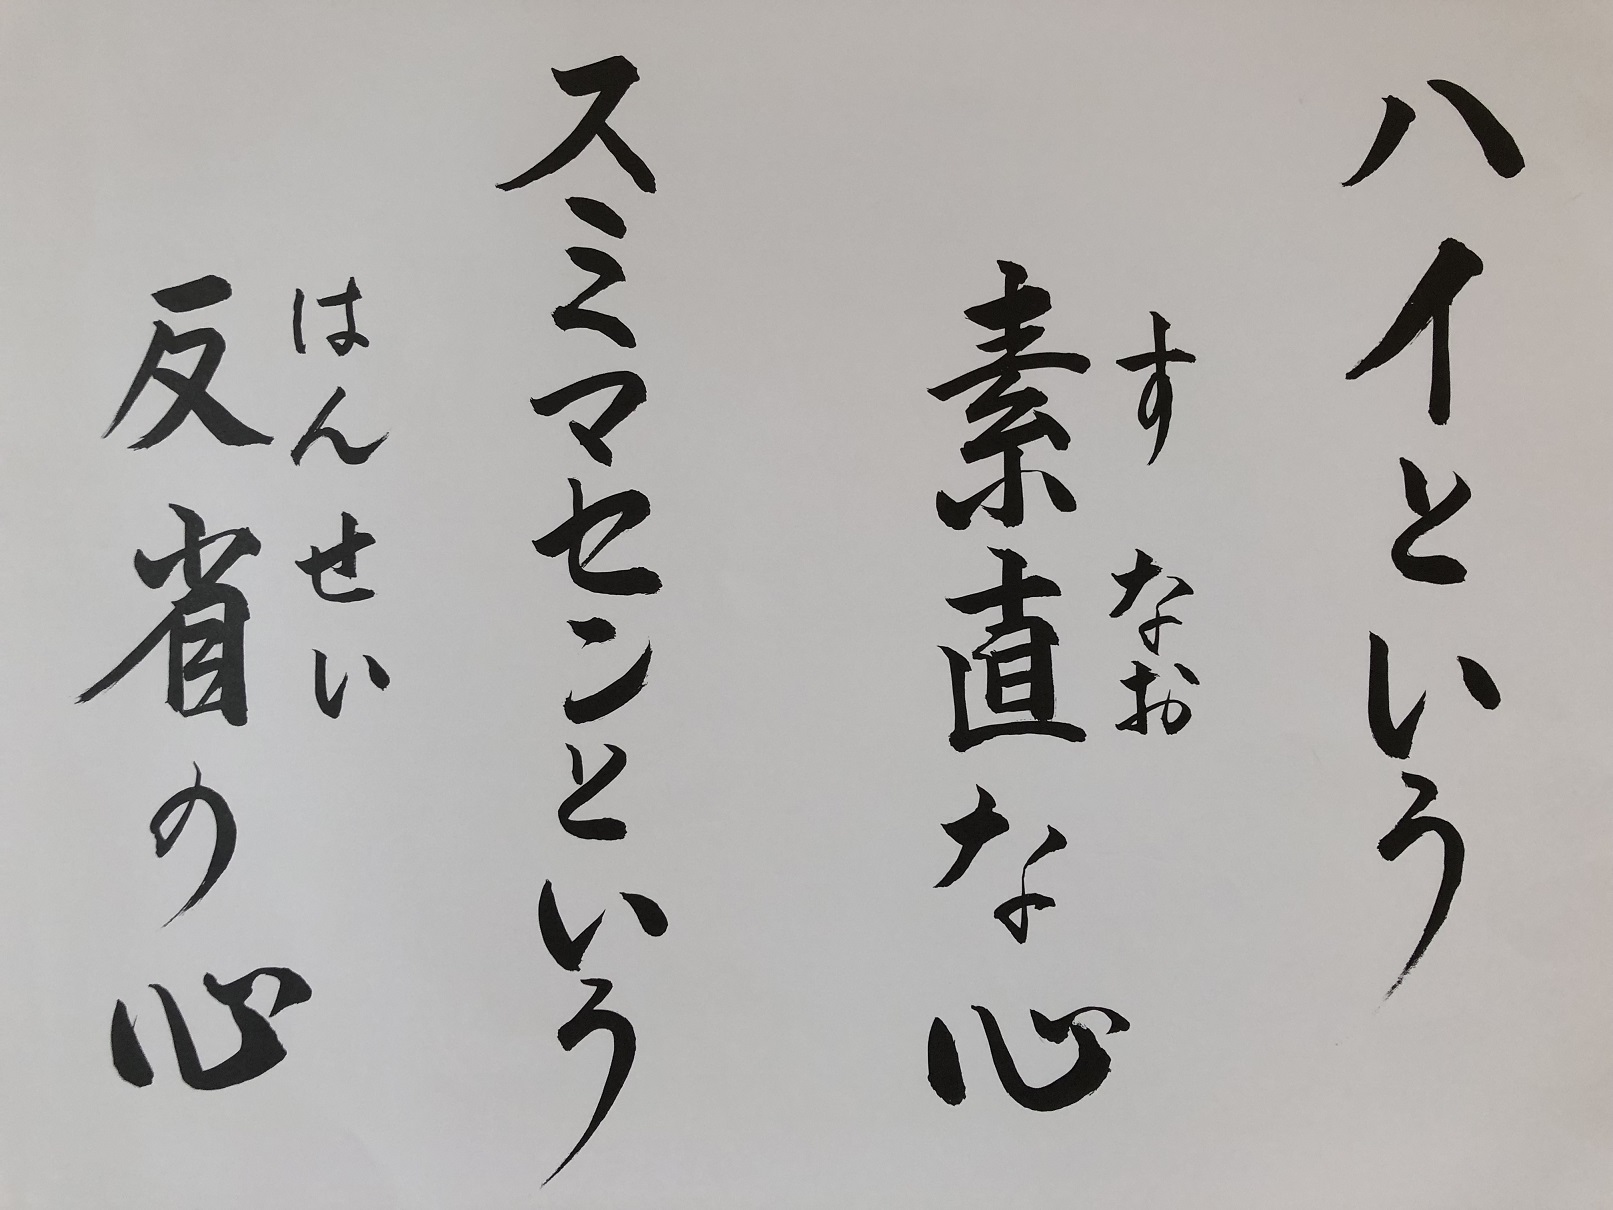 ハイという
すなお
素直な心
スミマセンという
はんせい
反省の心